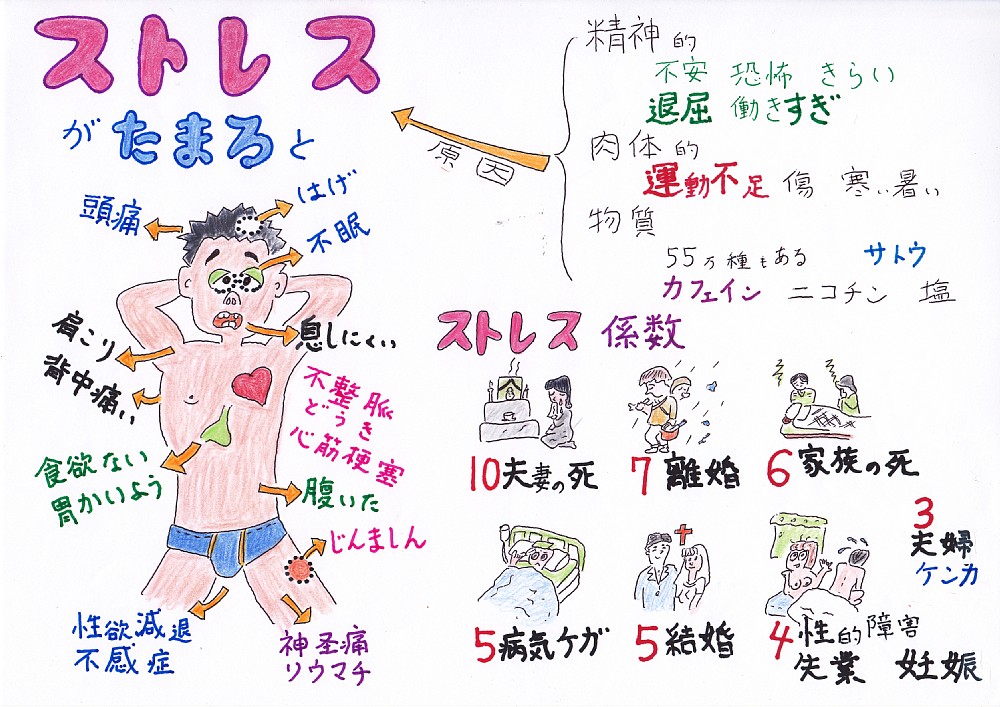 ストレス
がたまると
原因
精神的
不安 恐怖 きらい
退屈 働きすぎ
肉体的
運動不足 傷 寒い暑い
物質
55万種もある サトウ
カフェイン ニコチン 塩
頭痛
はげ
不眠
肩こり
息しにくい
背中痛い
不整脈
どうき
心筋梗塞
食欲ない
胃かいよう
腹いた
じんましん
性欲減退
不感症
神圣痛
リウマチ
ストレス係数
10夫妻の死
7離婚
6家族の死
5病気ケガ
5結婚
4性的障害
失業 妊娠
3
夫婦
ケンカ